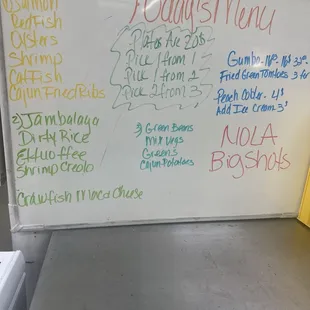 Today's Menu
1) Salmon
RedFish
Oisters
Shrimp
CatFish
Cajun Fried Ribs
Plates Are 20$
Pick 1 from 1
Pick 1 from 2
Pick 2 from 3
Gumbo
Fried Green Tomatoes 3 for
Peach Cobler 4$
Add Ice Cream 3$
2) Jambalaya
Dirty Rice
Etouffee
Shrimp Creole
Crawfish Mac & Cheese
3) Green Beans
Mix Vegs
Greens
Cajun Potatoes
NOLA
Big Shots